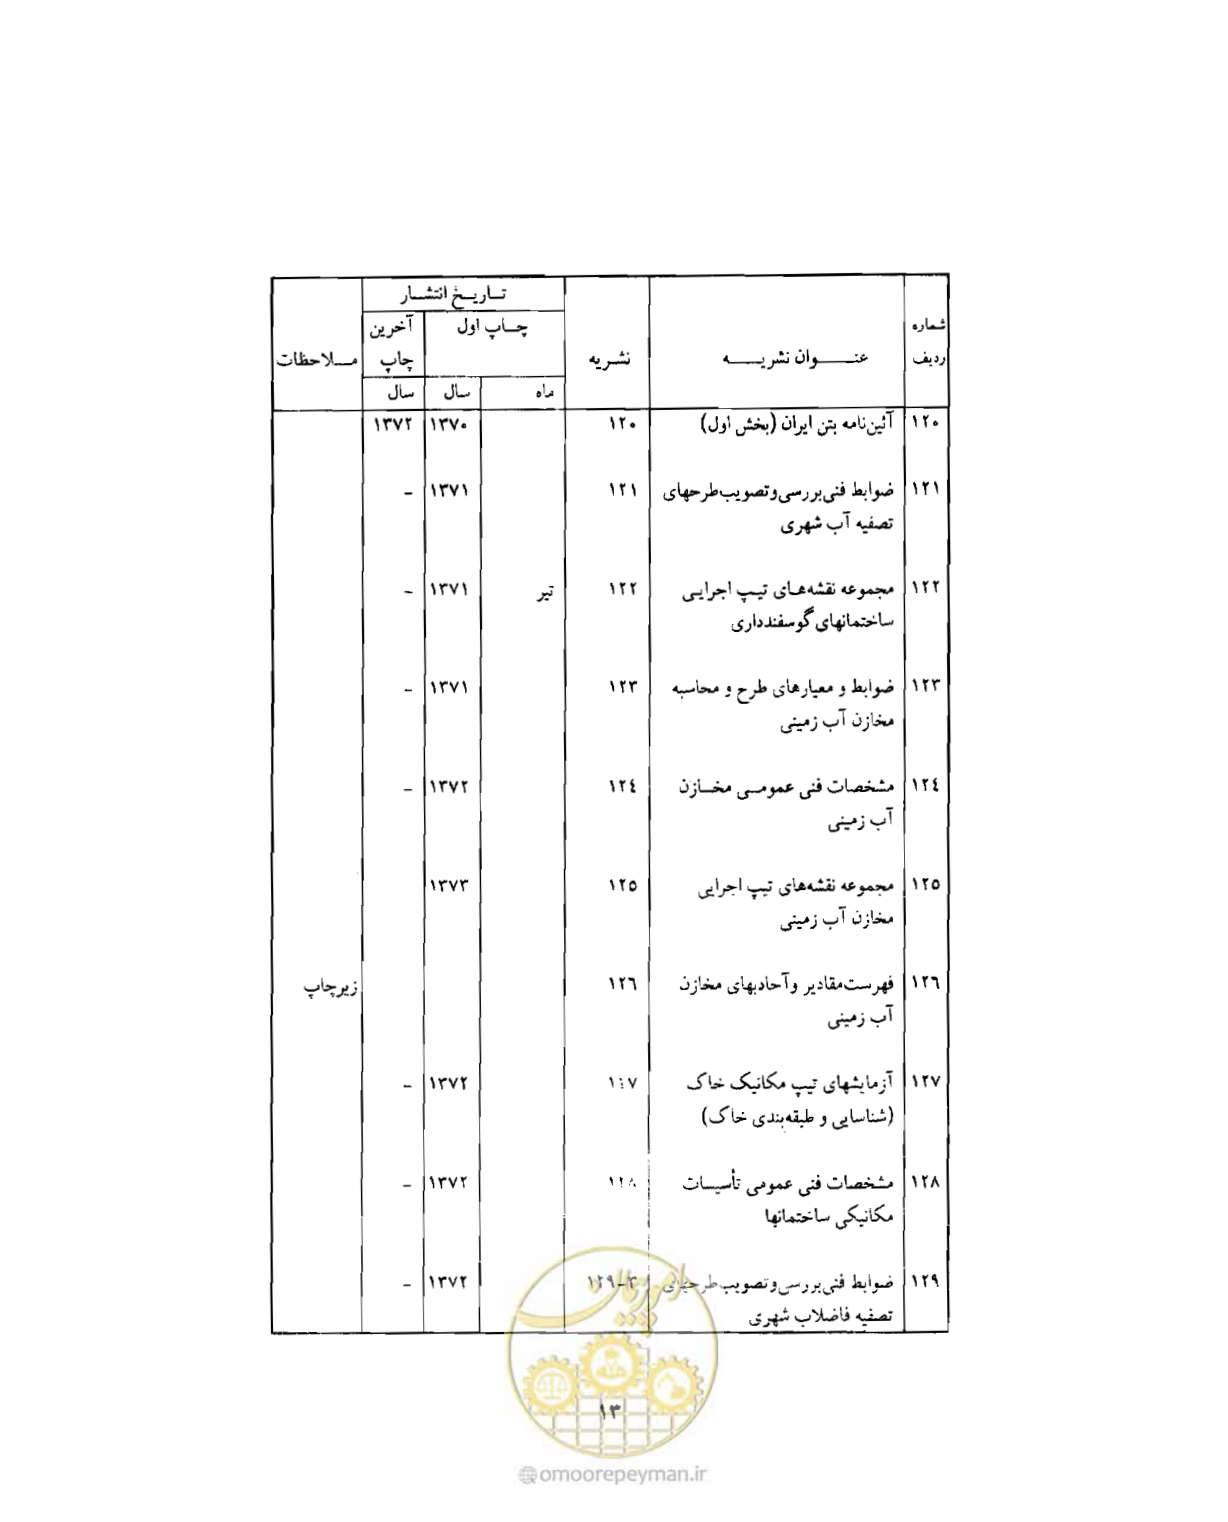 تاریخ انتشار
شماره چاپ اول آخرین
ردیف عنوان نشریه نشریه چاپ ملاحظات
ماه سال سال
۱۲۰ آئین‌نامه بتن ایران (بخش اول) ۱۲۰ ۱۳۷۰ ۱۳۷۲
۱۲۱ ضوابط فنی بررسی و تصویب طرحهای ۱۲۱ ۱۳۷۱ –
تصفیه آب شهری
۱۲۲ مجموعه نقشه‌های تیپ اجرایی ۱۲۲ تیر ۱۳۷۱ –
ساختمانهای گوسفندداری
۱۲۳ ضوابط و معیارهای طرح و محاسبه ۱۲۳ ۱۳۷۱ –
مخازن آب زمینی
۱۲٤ مشخصات فنی عمومی مخازن ۱۲٤ ۱۳۷۲ –
آب زمینی
۱۲۵ مجموعه نقشه‌های تیپ اجرایی ۱۲۵ ۱۳۷۳
مخازن آب زمینی
۱۲٦ فهرست مقادیر و آحادبهای مخازن ۱۲٦ زیرچاپ
آب زمینی
۱۲۷ آزمایشهای تیپ مکانیک خاک ۱۲۷ ۱۳۷۲ –
(شناسایی و طبقه‌بندی خاک)
۱۲۸ مشخصات فنی عمومی تأسیسات ۱۲۸ ۱۳۷۲ –
مکانیکی ساختمانها
۱۲۹ ضوابط فنی بررسی و تصویب طرحهای ۱۲۹-۳ ۱۳۷۲ –
تصفیه فاضلاب شهری
امور پیمان
۱۳
omoorepeyman.ir